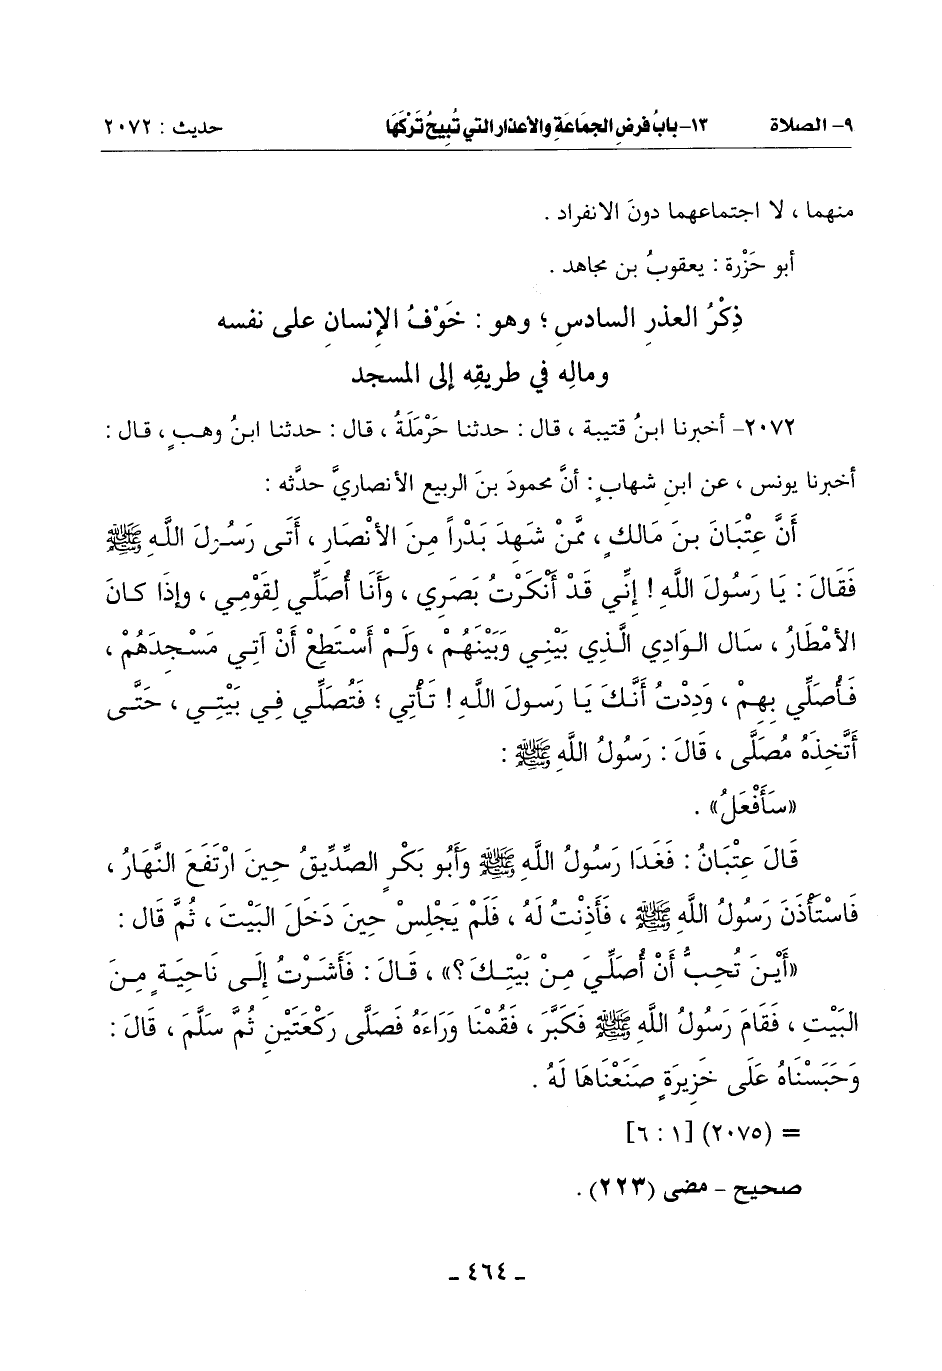 ٩- الصلاة ١٣- بابُ فرضِ الجمَاعَةِ والأعذار التي تُبيحُ تَرْكَهَا حديث : ٢٠٧٢
منهما ، لا اجتماعهما دونَ الانفراد .
أبو حَزْرة : يعقوبُ بن مجاهد .
ذِكْرُ العذرِ السادسِ ؛ وهو : خَوْفُ الإِنسانِ على نفسه
ومالِه في طريقِه إلى المسجد
٢٠٧٢- أخبرنا ابنُ قتيبة ، قال : حدثنا حَرْمَلَةُ ، قال : حدثنا ابنُ وهبٍ ، قال :
أخبرنا يونس ، عن ابنِ شهابٍ : أنَّ محمودَ بنَ الربيع الأنصاريَّ حدَّثه :
أَنَّ عِتْبَانَ بنَ مَالكٍ ، ممَّنْ شَهِدَ بَدْراً مِنَ الأنْصَارِ ، أَتَى رَسُولَ اللَّهِ ﷺ
فَقَالَ : يَا رَسُولَ اللَّهِ ! إنِّي قَدْ أَنْكَرْتُ بَصَرِي ، وَأَنَا أُصَلِّي لِقَوْمِي ، وإذَا كانَ
الأمْطَارُ ، سَال الوَادِي الَّذِي بَيْنِي وَبَيْنَهُمْ ، وَلَمْ أَسْتَطِعْ أَنْ آتِي مَسْجِدَهُمْ ،
فَأُصَلِّي بِهِمْ ، وَدِدْتُ أَنَّكَ يَا رَسولَ اللَّهِ ! تَأْتِي ؛ فَتُصَلِّي فِي بَيْتِي ، حَتَّى
أَتَّخِذَهُ مُصَلًّى ، قَالَ : رَسُولُ اللَّهِ ﷺ :
«سَأَفْعَلُ» .
قَالَ عِتْبَانُ : فَغَدَا رَسُولُ اللَّهِ ﷺ وَأَبُو بَكْرٍ الصِّدِّيقُ حِينَ ارْتَفَعَ النَّهَارُ ،
فَاسْتَأْذَنَ رَسُولُ اللَّهِ ﷺ ، فَأَذِنْتُ لَهُ ، فَلَمْ يَجْلِسْ حِينَ دَخَلَ البَيْتَ ، ثُمَّ قَال :
«أَيْنَ تُحِبُّ أَنْ أُصَلِّيَ مِنْ بَيْتِكَ ؟» ، قَالَ : فَأَشَرْتُ إلَى نَاحِيَةٍ مِنَ
البَيْتِ ، فَقَامَ رَسُولُ اللَّهِ ﷺ فَكَبَّرَ ، فَقُمْنَا وَرَاءَهُ فَصَلَّى رَكْعَتَيْنِ ثُمَّ سَلَّمَ ، قَالَ :
وَحَبَسْنَاهُ عَلَى خَزِيرَةٍ صَنَعْنَاهَا لَهُ .
= (٢٠٧٥) [١ : ٦]
صحيح - مضى (٢٢٣) .
- ٤٦٤ -